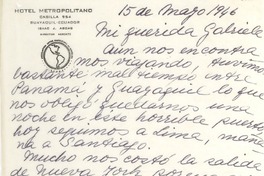 HOTEL METROPOLITANO
CASILLA 554
GUAYAQUIL-ECUADOR
15 de Mayo 1946
Mi querida Gabriela
aun nos encontra
mos viajando, tuvimos
bastante mal tiempo entre
Panamá y Guayaquil lo que
nos obligó quedarnos una
noche en este horrible puerto
hoy seguimos a Lima, maña
na a Santiago.
Mucho nos costó la salida
de Nueva York